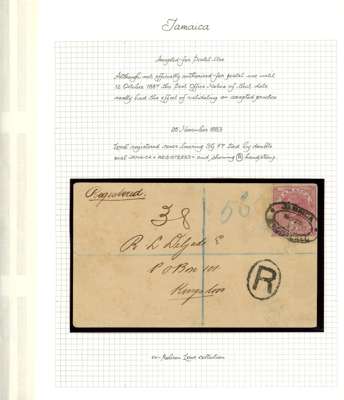 Jamaica
Accepted for Postal Use
Although not officially authorised for postal use until
12 October 1887 the Post Office Notice of that date
merely had the effect of validating an accepted practice
November 1883
Local registered cover bearing tied by double
oval JAMAICA * REGISTERED * and showing R handstamp
Registered.
38
58
JAMAICA
R L Delgado E
P O Box 101
Kingston
R
ex- collection